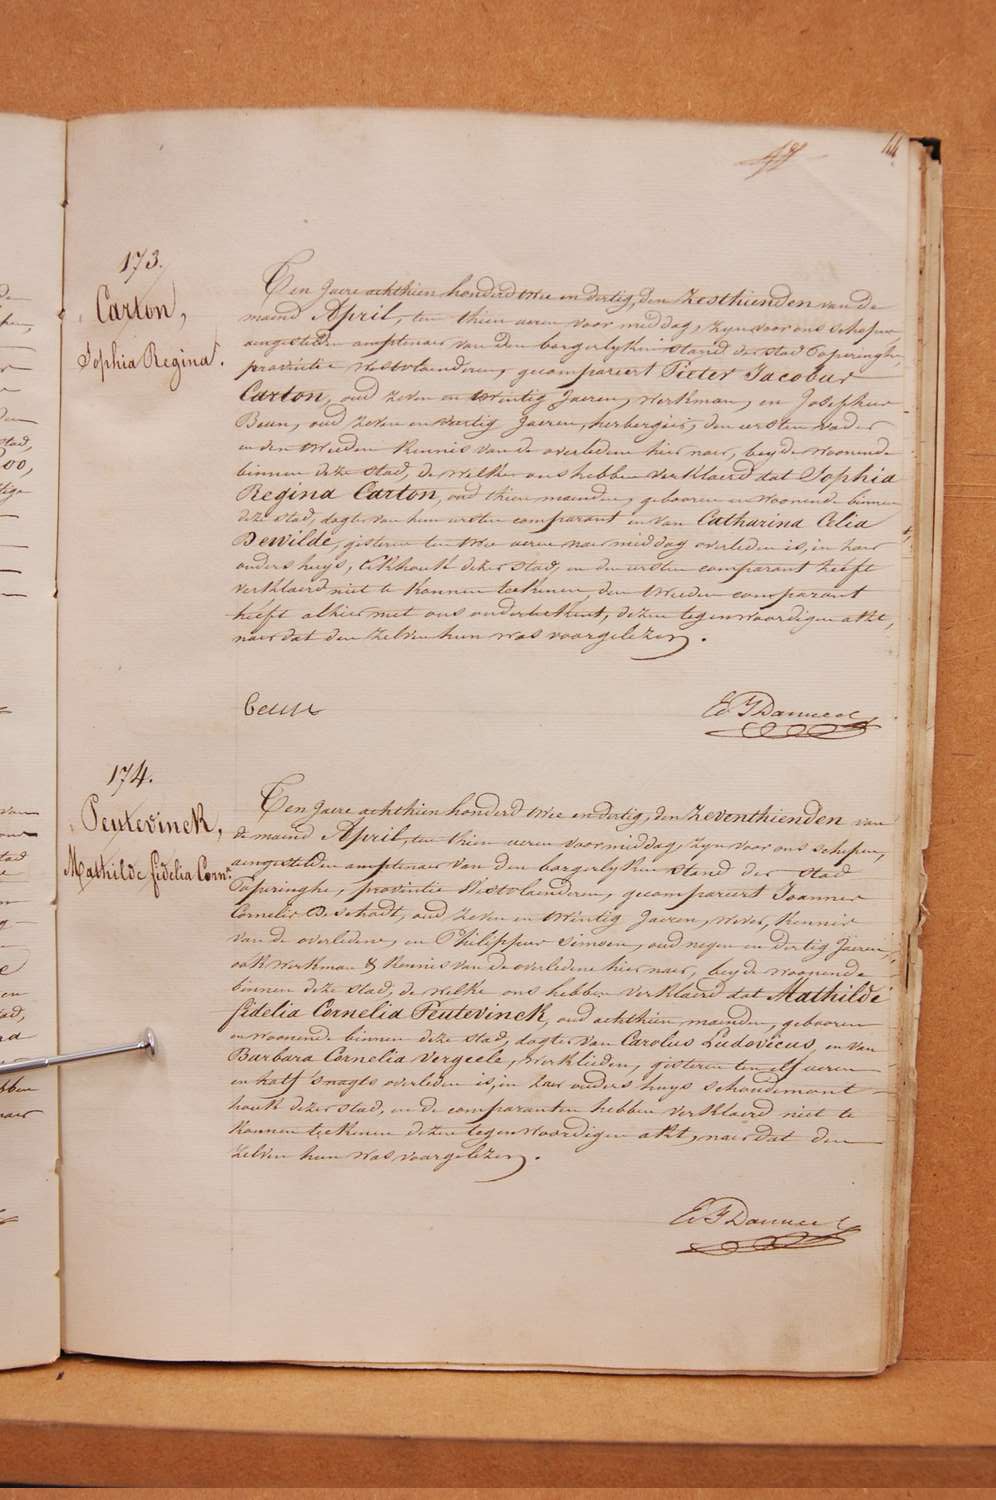 44
173.
Carton,
Sophia Regina.
Ten Jaere achthien honderd twee en dertig, den Zesthienden van de
maend April, ten thien ueren voor middag, zyn voor ons schepen
aengestelden amptenaer van den borgerlyken stand der stad Poperinghe,
provintie Westvlaenderen, gecompareert Pieter Jacobus
Carton, oud zeven en twintig Jaeren, werkman, en Josephus
Beun, oud zeven en veertig Jaeren, herbergier, den eersten vader
en den tweeden kennis van de overledene hier naer, beyde woonende
binnen deze stad, de welke ons hebben verklaerd dat Sophia
Regina Carton, oud thien maenden, gebooren en woonende binnen
deze stad, dogter van hun eersten comparant en van Catharina Celia
Dewilde, gisteren ten twee ueren naer middag overleden is, in haer
ouders huys, Eekhoutk dezer stad, en den eersten comparant heeft
verklaerd niet te konnen teekenen, den tweeden comparant
heeft alhier met ons onderteekent, dezen tegenwoordigen akt,
naer dat den zelven hun was voorgelezen.
Beun
174.
Peutevinck,
Mathilde fidelia Corn.
Ten Jaere achthien honderd twee en dertig, den Zeventhienden van
de maend April, ten thien ueren voormiddag, zyn voor ons schepen,
aengestelden amptenaer van den borgerlyken stand der stad
Poperinghe, provintie Westvlaenderen, gecompareert Joannes
Cornelis Deschodt, oud zeven en twintig Jaeren, wever, kennis
van de overledene, en Philippus Simoen, oud negen en dertig Jaeren,
ook werkman & kennis van de overledene hier naer, beyde woonende
binnen deze stad, de welke ons hebben verklaerd dat Mathilde
fidelia Cornelia Peutevinck, oud achthien maenden, gebooren
en woonende binnen deze stad, dogter van Carolus Ludovicus, en van
Barbara Cornelia Vergeele, werklieden, gisteren ten elf ueren
en half 's nagts overleden is, in haer ouders huys schoudemont
houk dezer stad, en de comparanten hebben verklaerd niet te
konnen teekenen dezen tegenwoordigen akt, naer dat den
zelven hun was voorgelezen.